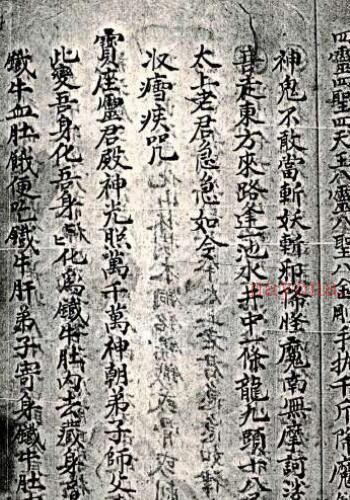 四靈四聖四天王八靈八聖八金剛手执千斤降
神鬼不敢當斬妖緝邪降怪魔南無摩訶
走東方來路逢池水井中一條龍九頭十八
太上老君急急如令
収瘧疾咒
寶座靈君殿神光照萬千萬神朝弟子師父
此变吾身化吾身化為鐵牛肚内去藏身
鐵牛血肚餓便吃鐵牛肝弟子寄身鐵牛肚